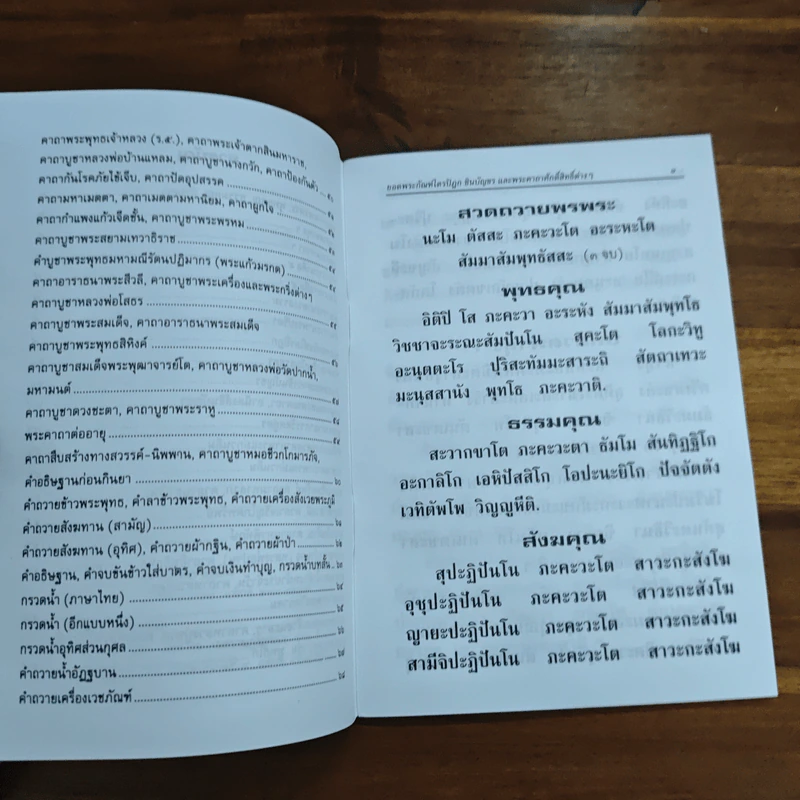 คาถาพระพุทธเจ้าหลวง (ร.๕.), คาถาพระเจ้าตากสินมหาราช,
คาถาบูชาหลวงพ่อบ้านแหลม, คาถาบูชานางกวัก, คาถาป้องกันตัว
คาถากันโรคภัยไข้เจ็บ, คาถาปัดอุปสรรค
คาถามหาเมตตา, คาถาเมตตามหานิยม, คาถาผูกใจ
คาถากำแพงแก้วเจ็ดชั้น, คาถาบูชาพระพรหม
คาถาบูชาพระสยามเทวาธิราช
คำบูชาพระพุทธมหามณีรัตนปฏิมากร (พระแก้วมรกต)
คาถาอาราธนาพระสีวลี, คาถาบูชาพระเครื่องและพระกริ่งต่างๆ
คาถาบูชาหลวงพ่อโสธร
คาถาบูชาพระสมเด็จ, คาถาอาราธนาพระสมเด็จ
คาถาพระพุทธสิหิงค์
คาถาบูชาสมเด็จพระพุฒาจารย์โต, คาถาบูชาหลวงพ่อวัดปากน้ำ,
มหามนต์
คาถาบูชาดวงชะตา, คาถาบูชาพระราหู
พระคาถาต่ออายุ
คาถาสืบสร้างทางสวรรค์-นิพพาน, คาถาบูชาหมอชีวกโกมารภัจ,
คำอธิษฐานก่อนกินยา
คำถวายข้าวพระพุทธ, คำลาข้าวพระพุทธ, คำถวายเครื่องสังเวยพระภูมิ
คำถวายสังฆทาน (สามัญ)
คำถวายสังฆทาน (อุทิศ), คำถวายผ้ากฐิน, คำถวายผ้าป่า
คำอธิษฐาน, คำจบขันข้าวใส่บาตร, คำจบเงินทำบุญ, กรวดน้ำบทสั้น
กรวดน้ำ (ภาษาไทย)
กรวดน้ำ (อีกแบบหนึ่ง)
กรวดน้ำอุทิศส่วนกุศล
คำถวายน้ำอัฏฐบาน
คำถวายเครื่องเวชภัณฑ์
ยอดพระกัณฑ์ไตรปิฎก ชินบัญชร และพระคาถาศักดิ์สิทธิ์ต่างๆ
สวดถวายพรพระ
นะโม ตัสสะ ภะคะวะโต อะระหะโต
สัมมาสัมพุทธัสสะ (๓ จบ)
พุทธคุณ
อิติปิ โส ภะคะวา อะระหัง สัมมาสัมพุทโธ
วิชชาจะระณะสัมปันโน สุคะโต โลกะวิทู
อะนุตตะโร ปุริสะทัมมะสาระถิ สัตถาเทวะ
มะนุสสานัง พุทโธ ภะคะวาติ.
ธรรมคุณ
สะวากขาโต ภะคะวะตา ธัมโม สันทิฏฐิโก
อะกาลิโก เอหิปัสสิโก โอปะนะยิโก ปัจจัตตัง
เวทิตัพโพ วิญญูหีติ.
สังฆคุณ
สุปะฏิปันโน ภะคะวะโต สาวะกะสังโฆ
อุชุปะฏิปันโน ภะคะวะโต สาวะกะสังโฆ
ญายะปะฏิปันโน ภะคะวะโต สาวะกะสังโฆ
สามีจิปะฏิปันโน ภะคะวะโต สาวะกะสังโฆ